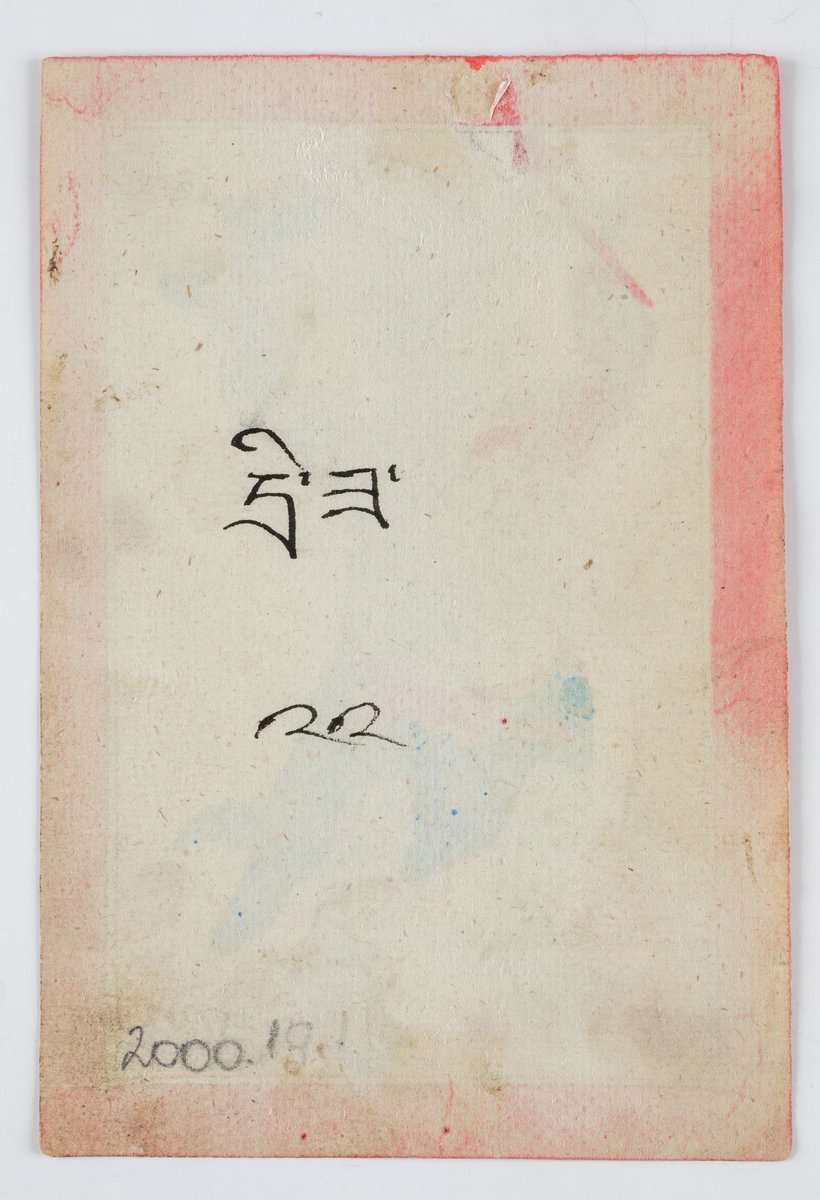 དྲི་ཟ་
༢༢
2000.19.